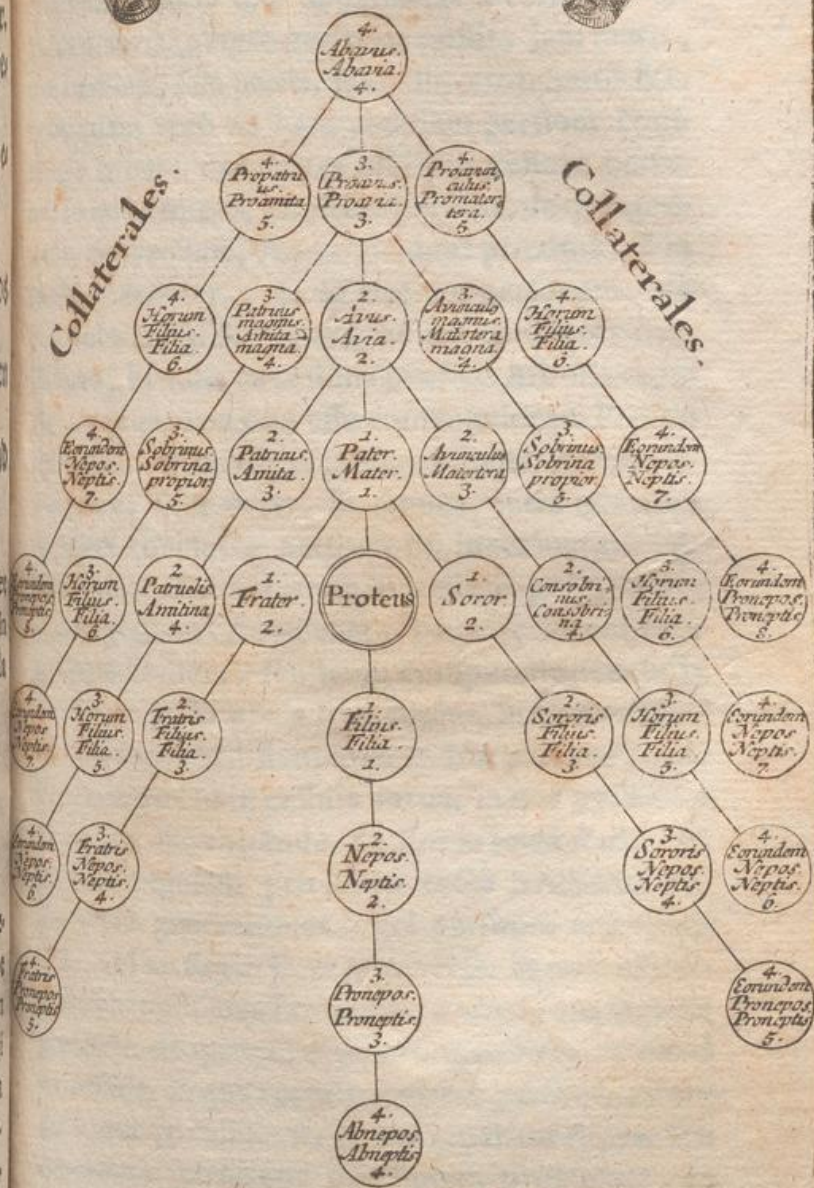 4.
Abavus.
Abavia.
4.
4.
Propatru
us.
Proamita
5.
3.
Proavus.
Proavia.
3.
4.
Proavun
culus.
Promater
tera.
5.
Collaterales.
Collaterales.
4.
Horum
Filius.
Filia.
6.
3.
Patruus
magnus.
Amita
magna.
4.
2.
Avus.
Avia.
2.
3.
Avunculg
magnus.
Matertera
magna.
4.
4.
Horum
Filius.
Filia.
6.
4.
Eorundem
Nepos.
Neptis.
7.
3.
Sobrinus.
Sobrina
propior.
5.
2.
Patruus.
Amita.
3.
1.
Pater.
Mater.
1.
2.
Avunculus
Matertera
3.
3.
Sobrinus.
Sobrina
propior.
5.
4.
Eorundem
Nepos.
Neptis.
7.
4.
Eorundem
Pronepos.
Proneptis
8.
3.
Horum
Filius.
Filia.
6.
2
Patruelis
Amitina
4.
1.
Frater.
2.
Proteus
1.
Soror.
2.
2.
Consobri-
nus.
Consobri-
na
4.
3.
Horum
Filius.
Filia.
6.
4.
Eorundem
Pronepos.
Proneptis.
8.
4.
Eorundem
Nepos
Neptis
7.
3.
Horum
Filius.
Filia.
5.
2.
Fratris
Filius.
Filia.
3.
1.
Filius.
Filia.
1.
2.
Sororis
Filius.
Filia.
3.
3.
Horum
Filius.
Filia
5.
4.
Eorundem
Nepos
Neptis.
7.
4.
Eorundem
Nepos.
Neptis.
6.
3.
Fratris
Nepos.
Neptis.
4.
2.
Nepos.
Neptis.
2.
3.
Sororis
Nepos.
Neptis
4.
4.
Eorundem
Nepos.
Neptis.
6.
4.
Fratris
Pronepos.
Proneptis
5.
3.
Pronepos.
Proneptis.
3.
4.
Eorundem
Pronepos.
Proneptis
5.
4.
Abnepos.
Abneptis.
4.